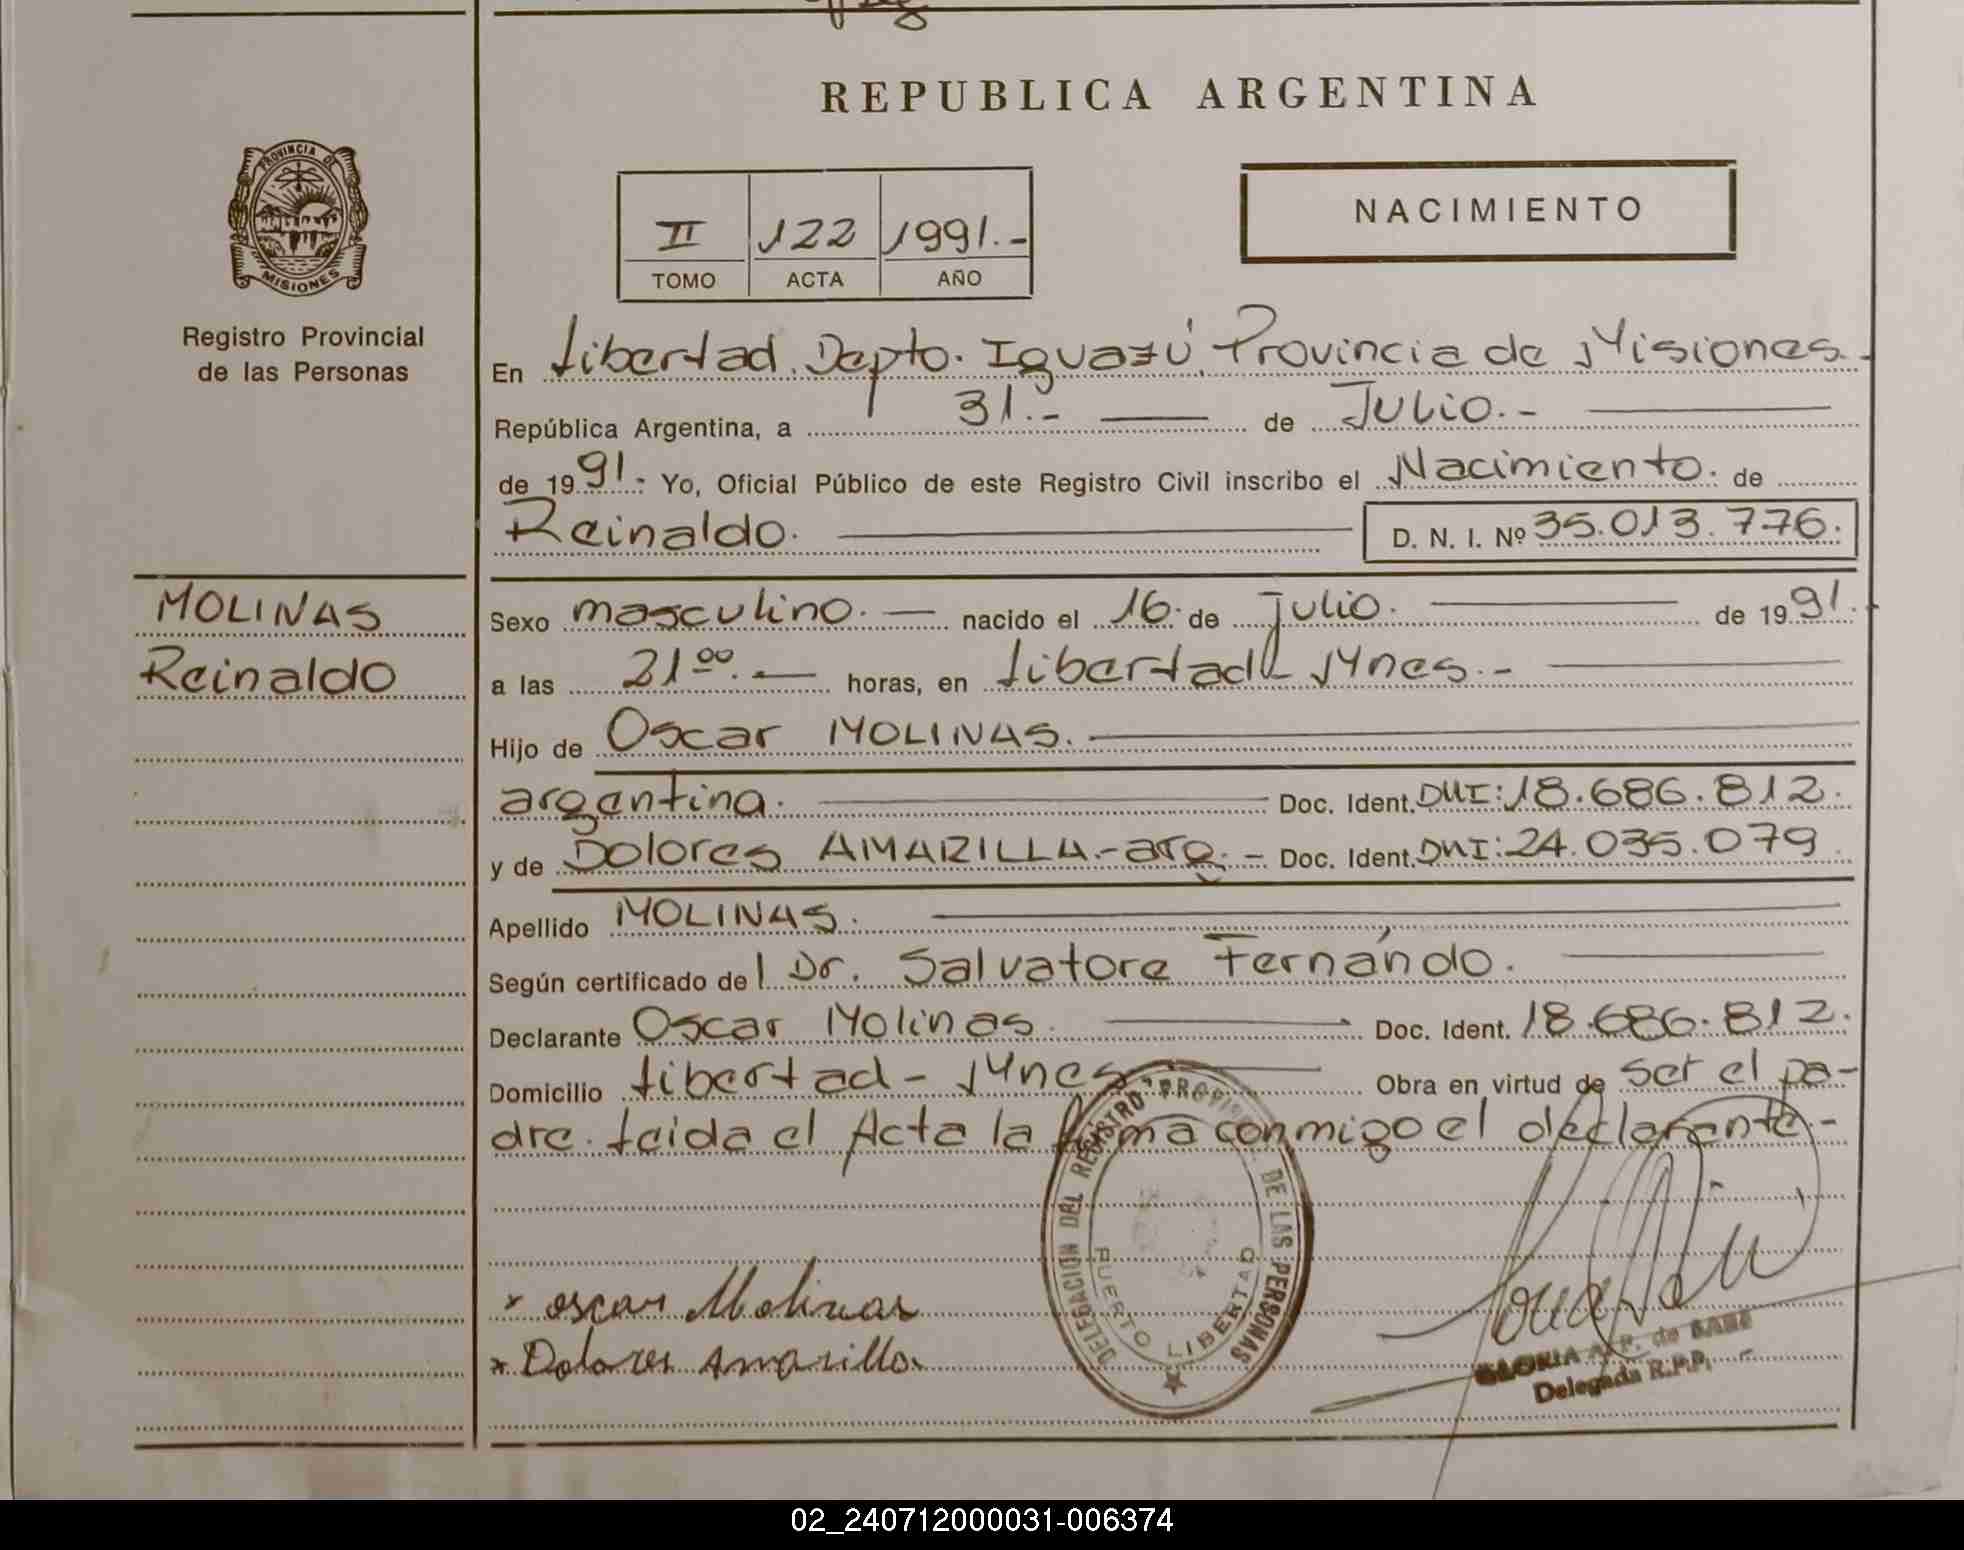 REPUBLICA ARGENTINA
PROVINCIA DE
MISIONES
Registro Provincial
de las Personas
II 122 1991.-
TOMO ACTA AÑO
NACIMIENTO
En Libertad. Depto. Iguazú, Provincia de Misiones.
República Argentina, a 31.- de Julio.-
de 1991.- Yo, Oficial Público de este Registro Civil inscribo el Nacimiento. de
Reinaldo. D. N. I. Nº 35.013.776.
MOLINAS
Reinaldo
Sexo masculino. nacido el 16. de julio. de 1991.
a las 21 00. horas, en Libertad - Mnes.-
Hijo de Oscar MOLINAS.
argentina. Doc. Ident. DNI: 18.686.812.
y de Dolores AMARILLA.- arg.- Doc. Ident. DNI: 24.035.079
Apellido MOLINAS.
Según certificado del Dr. Salvatore Fernándo.
Declarante Oscar Molinas. Doc. Ident. 18.686.812.
Domicilio Libertad - Mnes Obra en virtud de ser el pa-
dre. Leida el Acta la firma conmigo el declarante.-
DELEGACION DEL REGISTRO PROVINC. DE LAS PERSONAS
PUERTO LIBERTAD
x oscar Molinas
x Dolores Amarilla
GLORIA A. P. de
Delegada R.P.P.
02_240712000031-006374